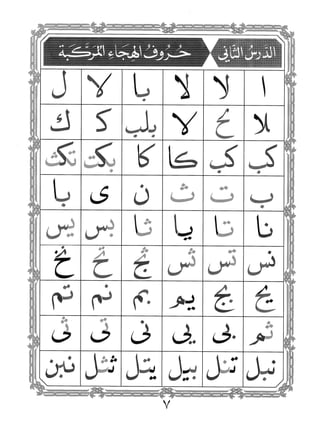 الدَرسُ الثَّانِي حُرُوفُ الهِجَاءِ المُرَكَّبَة
ا لا لا با لا ل
بلا مح لا بلب كـ ك
كب كب كا كا بكت تكث
ب ت ث ن ى با
نا تا يا ثا بس يس
نس تس ثس ثج تح نخ
يج بج يم بم نم تم
ثم بى يى نى تى ثى
نبل تنل بيل يتل ثثل نبن
٧